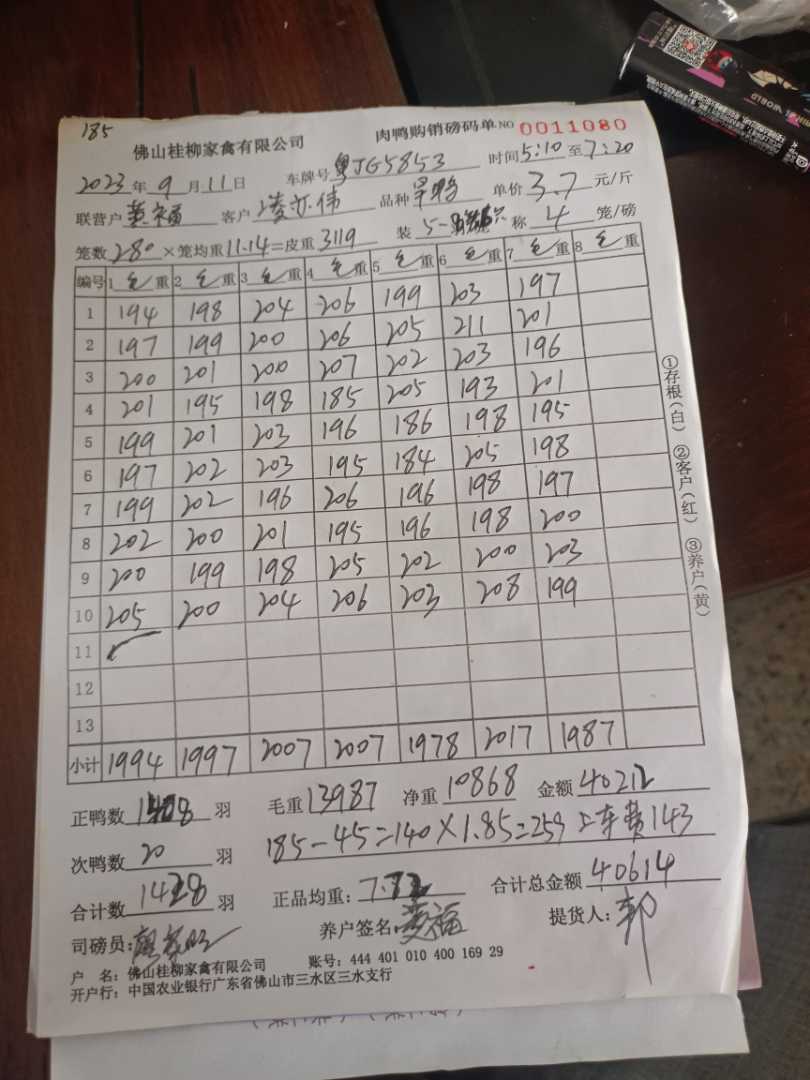 WORLD
185
佛山桂柳家禽有限公司 肉鸭购销磅码单 NO 0011080
2023年9月11日 车牌号粤JG5853 时间5:10至7:20
联营户黄福 客户凌亦伟 品种 单价3.7元/斤
笼数280×笼均重11.14=皮重3119 装5- 称4笼/磅
编号 1毛重 2毛重 3毛重 4毛重 5毛重 6毛重 7毛重 8毛重
1 194 198 204 206 199 203 197
2 197 199 200 206 205 211 201
3 200 201 200 207 202 203 196
4 201 195 198 185 205 193 201
5 199 201 203 196 186 198 195
6 197 202 203 195 184 205 198
7 199 202 196 206 196 198 197
8 202 200 201 195 196 198 200
9 200 199 198 205 202 200 203
10 205 200 204 206 203 208 199
11
12
13
小计 1994 1997 2007 2007 1978 2017 1987
①存根(白) ②客户(红) ③养户(黄)
正鸭数1408羽 毛重13987 净重10868 金额40212
次鸭数20羽 185-45=140×1.85=259 上车费143
合计数1428羽 正品均重:7.72 合计总金额40614
司磅员: 养户签名:黄福 提货人:郭
户 名:佛山桂柳家禽有限公司 账号:444 401 010 400 169 29
开户行:中国农业银行广东省佛山市三水区三水支行